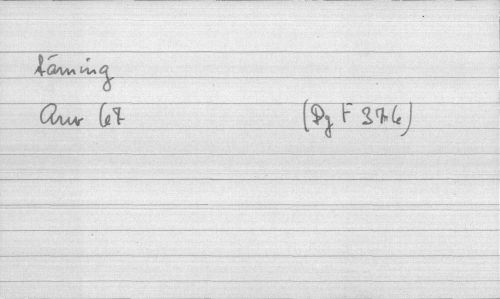 tärning
Anv 67 (Dg F 376)